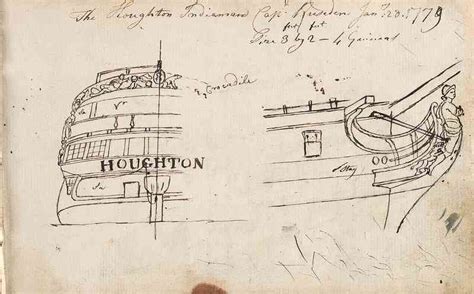 The Houghton Indiaman Capt. Rusden Jany. 28. 1779
feet feet
Five 3 by 2 – 4 Guineas
a Crocodile
HOUGHTON
OO